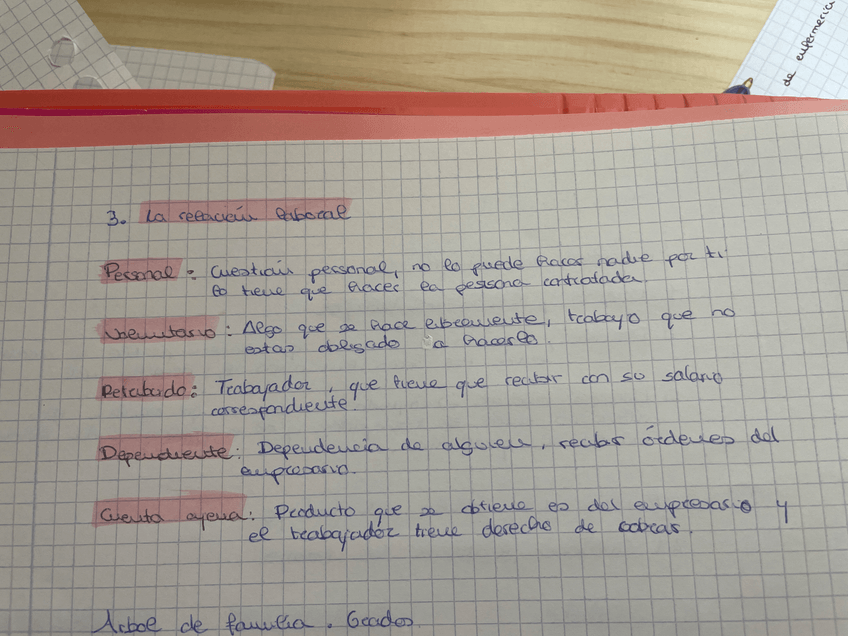 de enfermeria
3. La relación laboral
Personal : Cuestión personal, no lo puede hacer nadie por ti
lo tiene que hacer la persona contratada.
Voluntario : Algo que se hace libremente, trabajo que no
estas obligado a hacerlo.
Retribuido : Trabajador, que tiene que recibir con su salario
correspondiente.
Dependiente : Dependencia de alguien, recibir órdenes del
empresario.
Cuenta ajena : Producto que se obtiene es del empresario y
el trabajador tiene derecho de cobrar.
Arbol de familia. Grados.